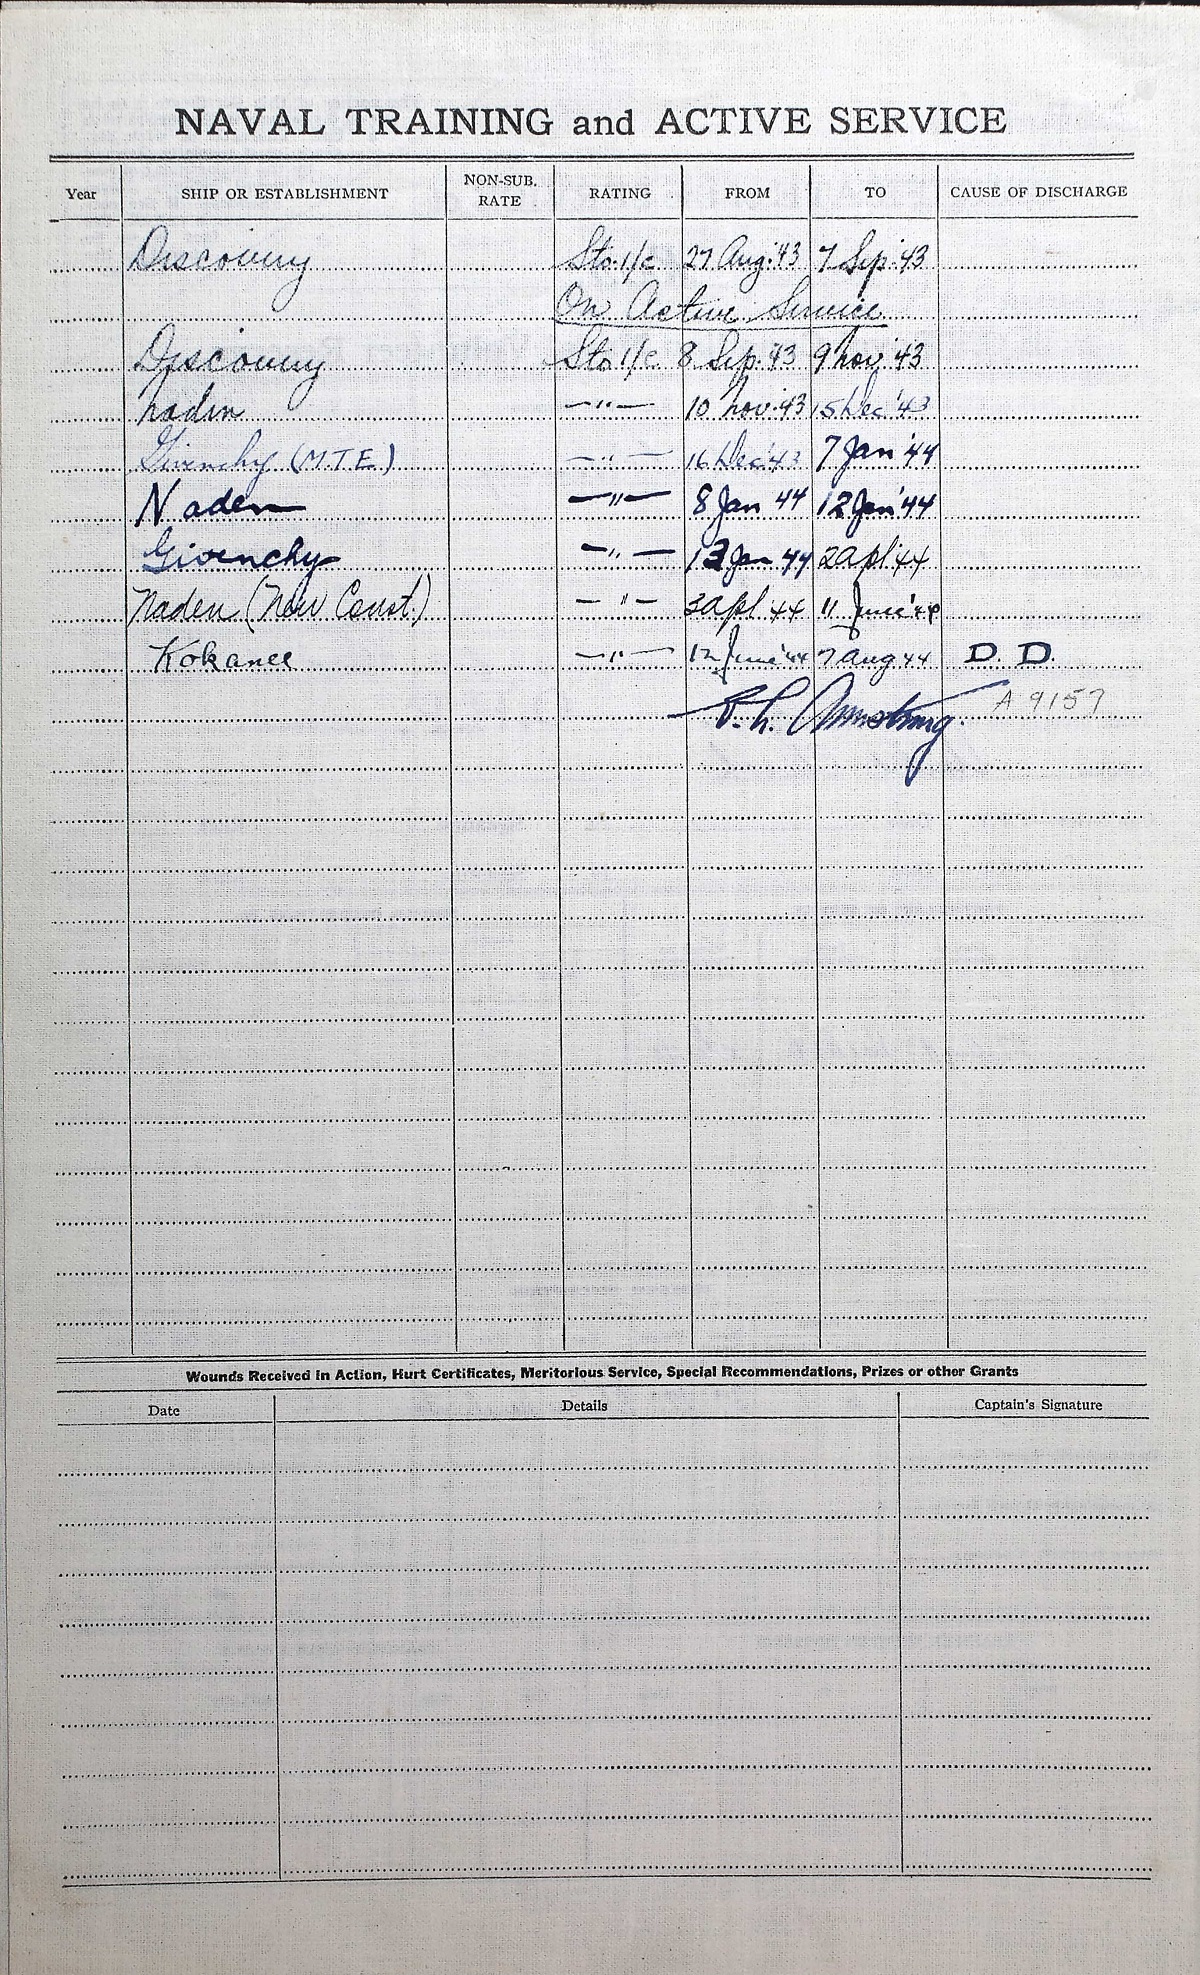 NAVAL TRAINING and ACTIVE SERVICE
Year SHIP OR ESTABLISHMENT NON-SUB. RATE RATING FROM TO CAUSE OF DISCHARGE
Discovery Sto. 1/c 27 Aug. '43 7 Sep. '43
On Active Service
Discovery Sto. 1/c 8 Sep. '43 9 Nov '43
Naden —"— 10 Nov. 43 15 Dec '43
Givenchy (M.T.E.) —"— 16 Dec '43 7 Jan '44
Naden —"— 8 Jan 44 12 Jan '44
Givenchy —"— 13 Jan 44 2 Apl '44
Naden (New Const.) —"— 3 Apl 44 11 June '44
Kokanee —"— 12 June '44 7 Aug 44 D. D.
Armstrong A 9157
Wounds Received in Action, Hurt Certificates, Meritorious Service, Special Recommendations, Prizes or other Grants
Date Details Captain's Signature